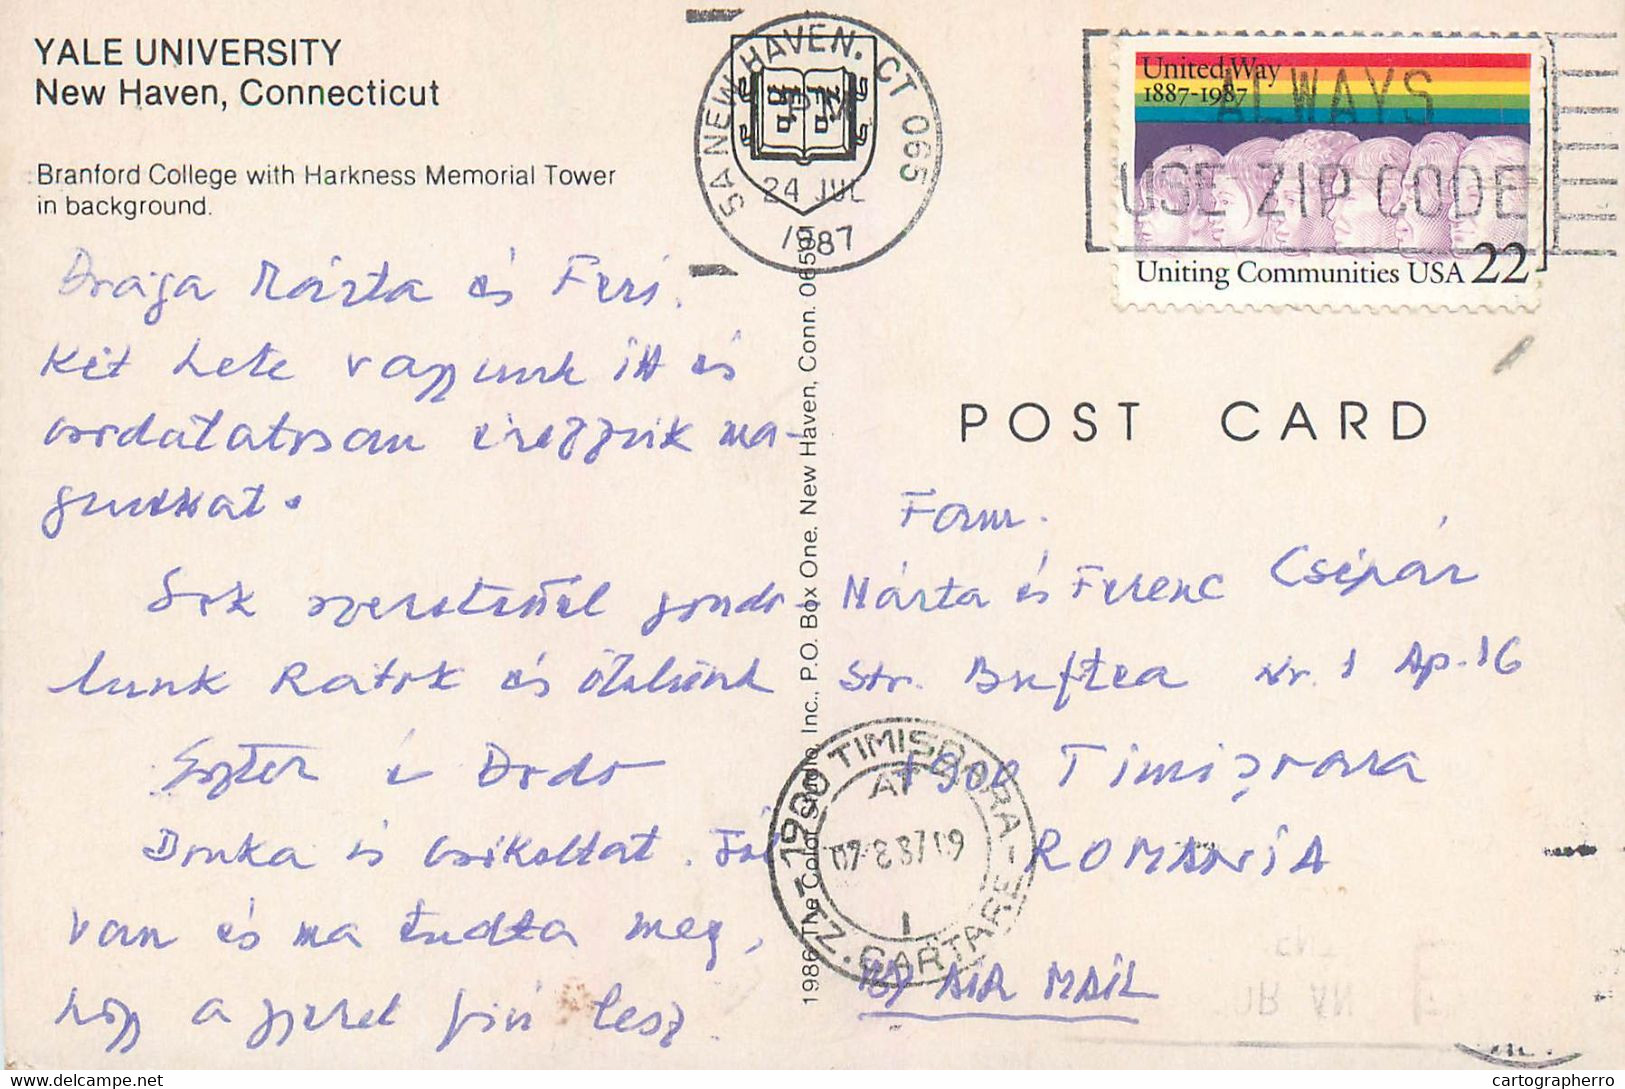 YALE UNIVERSITY
New Haven, Connecticut
Branford College with Harkness Memorial Tower
in background.
Drága Márta és Feri.
Két hete vagyunk itt és
csodálatosan érezzük ma-
gunkat.
Sok szeretettel gondo-
lunk Rátok és ölelünk
Eszter és Dodo
Donka is csókoltat. Jól
van és ma tudta meg,
hogy a gyerek fiú lesz.
1986 The Color Studio, Inc., P.O. Box One. New Haven, Conn. 06501
SA NEW HAVEN, CT 065
PM
24 JUL
1987
United Way
1887-1987
ALWAYS
USE ZIP CODE
Uniting Communities USA 22
POST CARD
Fam.
Márta és Ferenc Csipár
Str. Buftea Nr. 1 Ap. 16
1900 Timișoara
ROMANIA
BY AIR MAIL
1900 TIMISOARA
07-8 87 09
1
CARTARE